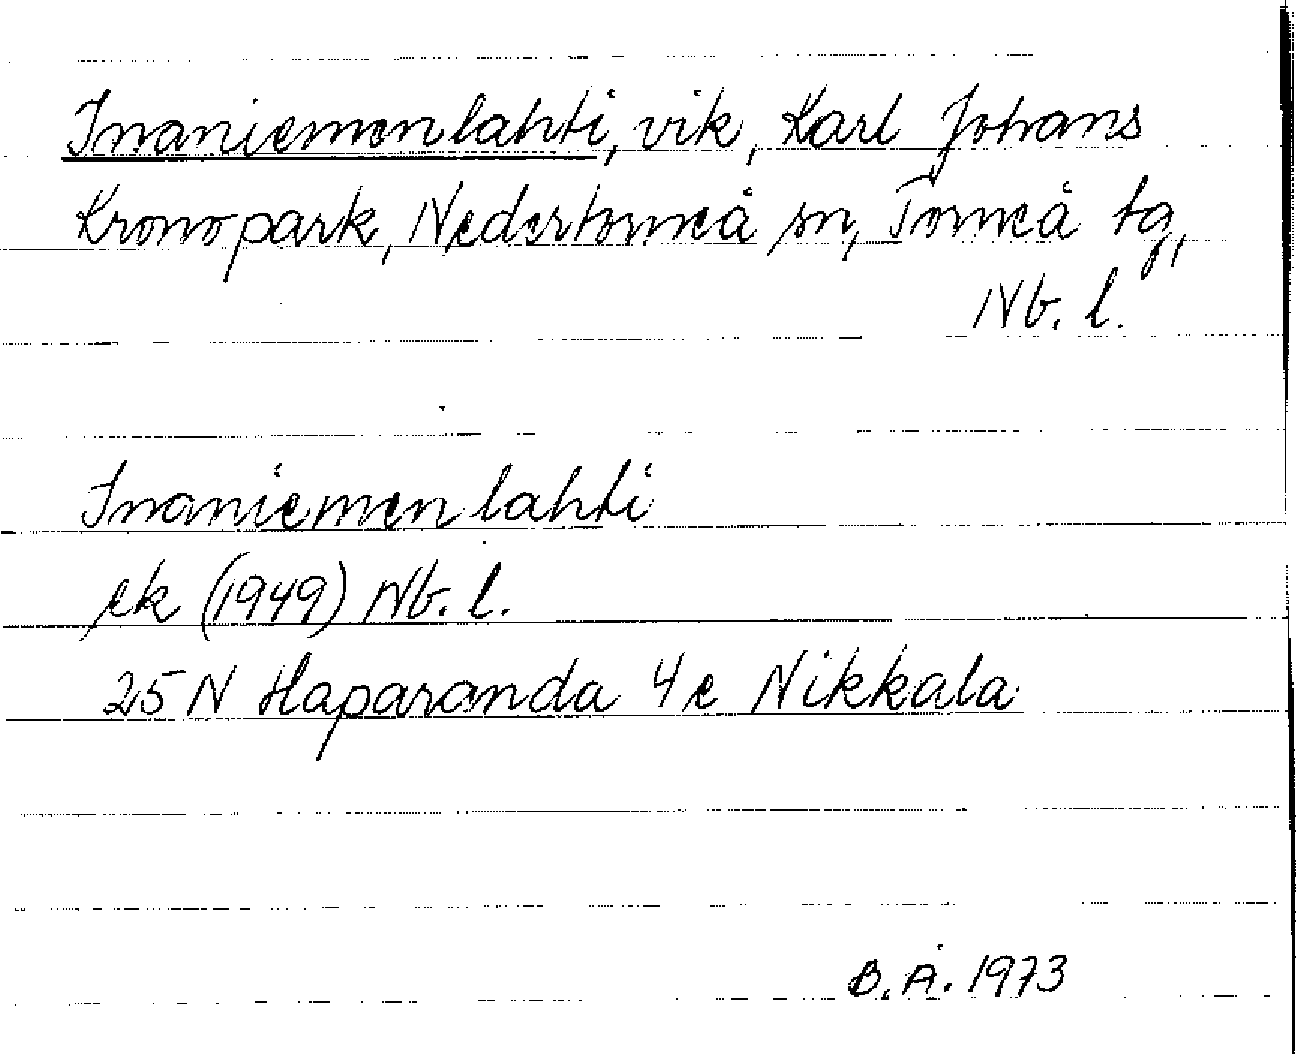 Inaniemenlahti, vik, Karl Johans
Kronopark, Nedertorneå sn, Torneå tg,
Nb. l.
Inaniemenlahti
ek (1949) Nb. l.
25 N Haparanda 4 e Nikkala
B. Å. 1973